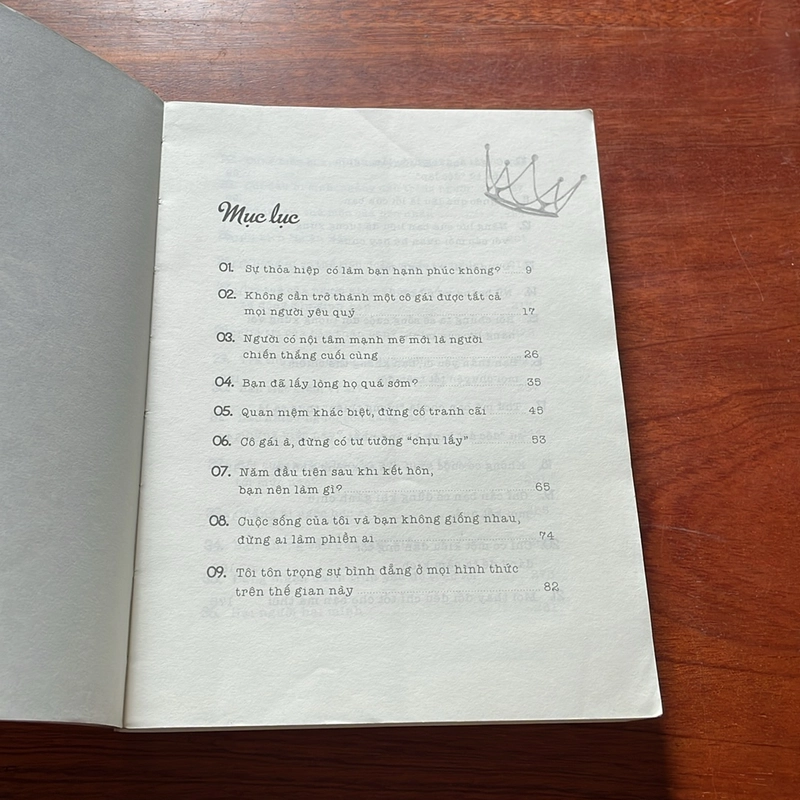 Mục lục
01. Sự thỏa hiệp có làm bạn hạnh phúc không? 9
02. Không cần trở thành một cô gái được tất cả
mọi người yêu quý 17
03. Người có nội tâm mạnh mẽ mới là người
chiến thắng cuối cùng 26
04. Bạn đã lấy lòng họ quá sớm? 35
05. Quan niệm khác biệt, đừng cố tranh cãi 45
06. Cô gái à, đừng có tư tưởng “chịu lấy” 53
07. Năm đầu tiên sau khi kết hôn,
bạn nên làm gì? 65
08. Cuộc sống của tôi và bạn không giống nhau,
đừng ai làm phiền ai 74
09. Tôi tôn trọng sự bình đẳng ở mọi hình thức
trên thế gian này 82